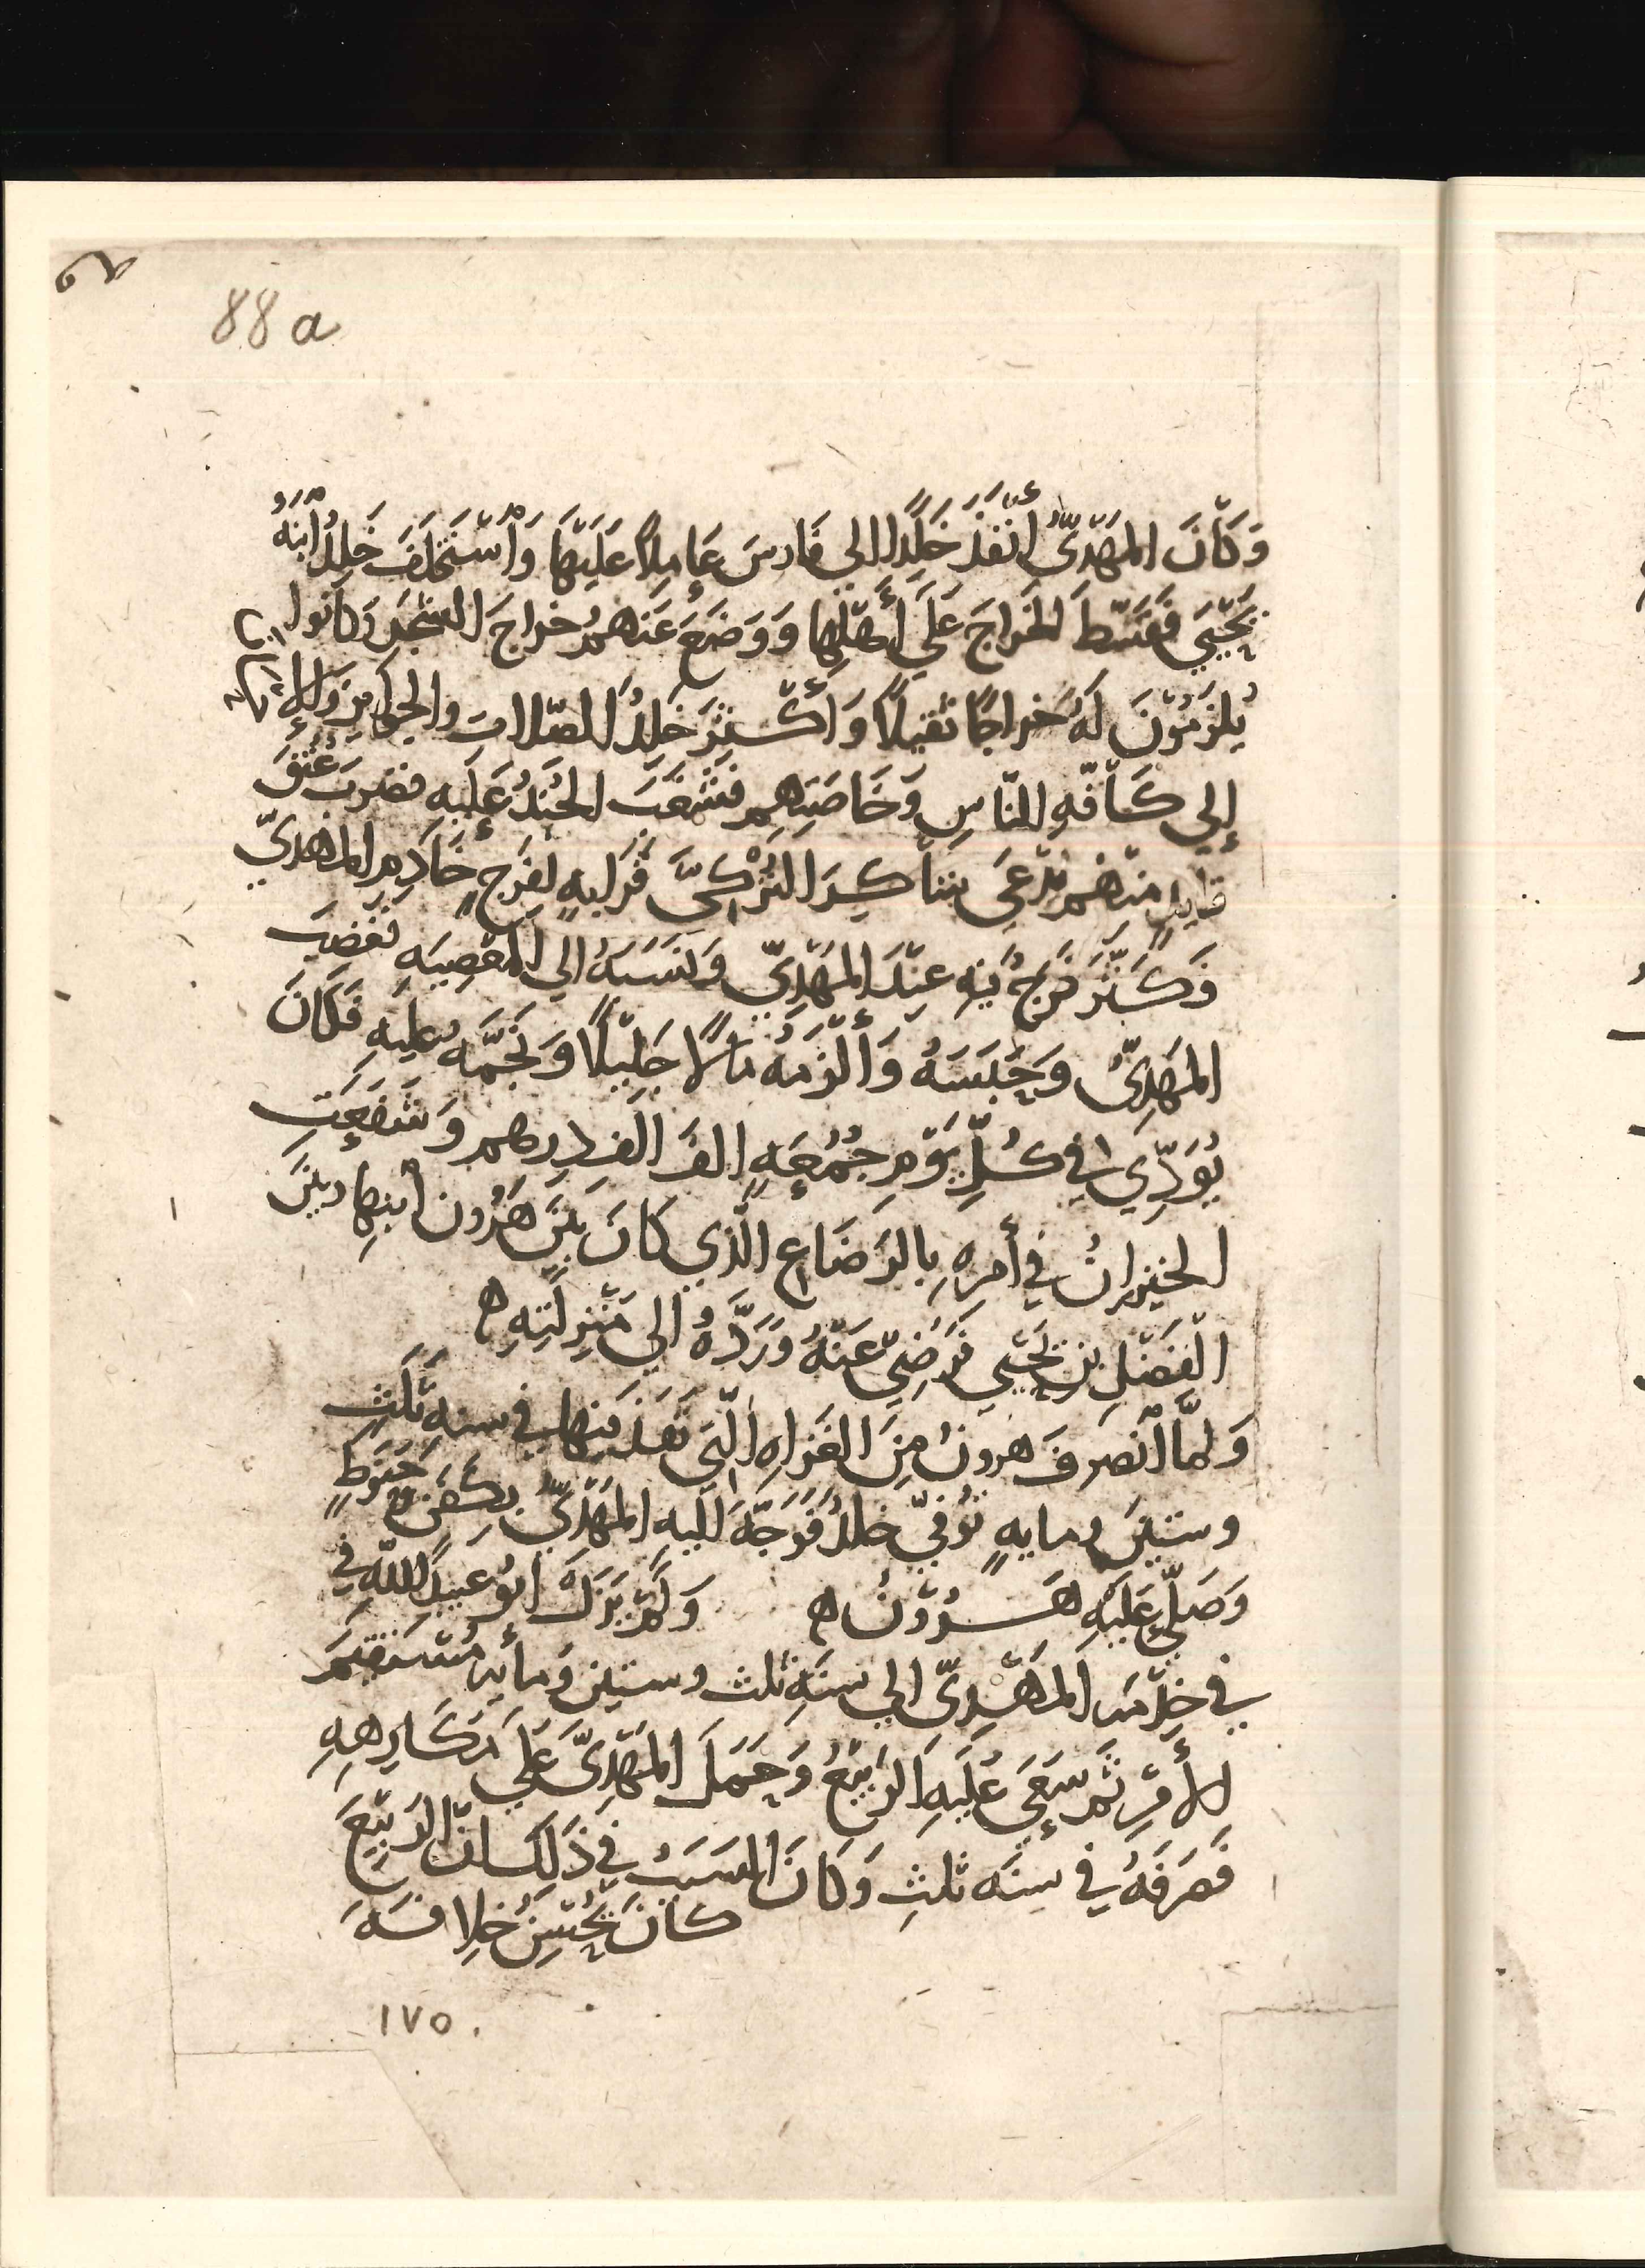 88 a
وَكَانَ المَهْدِيُّ أَنْفَذَ خَلِدًا الي فَارسَ عَامِلًا عَلَيْهَا وَاسْتَخْلَفَ خَلِدُ ابْنَهُ
يَحْيَي فَقَسَّطَ الخَرَاجَ عَلَي أَهْلِهَا وَوَضَعَ عَنْهُم خراجَ الشَجَرِ وَكانوا
يُلزَمُوْنَ لَهُ خراجًا ثقيلًا وَأَكْثَرَ خَلِدُ الصّلاتِ والجوائزَ
إلي كَافَّهِ النّاسِ وَخَاصَتِهِم فَشَغَبَ الجُنْدُ عَلَيهِ فضربَ عُنُقَ
قايدٍ منهُم يُدْعَي بشَاكِرَ التُرْكِيَّ قَرَابهٍ لِفَرَجٍ خَادِمِ المهديّ
فَكَثَّرَ فَرَجُ فيْهِ عِنْدَ المَهْدِيّ وَنَسَبَهُ الي المَعْصِيَهِ فَغَضِبَ
المَهْدِيُّ وَحَبَسَهُ وَأَلْزَمَهُ مَالًا جَلِيْلًا وَنَجَّمَهُ عليهِ فَكَانَ
يُوَدِّي في كُلِّ يَوْمِ جُمُعَهٍ الفَ الفِ درهم وَشَفَعَتِ
الخيزرانُ في أَمرهِ بِالرَضَاعِ الَّذِي كَانَ بَيْنَ هَرُونَ ابنِها وبينَ
الْفَضْلِ بن يَحْيي فَرَضِيَ عَنْهُ وَرَدَّهُ الي مَنْزِلَتِهِ ه
وَلَمَّا انْصَرَفَ هرونُ مِنَ الغَزَاهِ الَّتي نَفَذ فيها في سنه ثَلَثِ
وستينَ ومايهٍ تُوُفّيَ خلدُ فَوَجَّهَ اليهِ المَهْدِيُّ بِكَفَنٍ وَحَنوطٍ
وَصَلَّي عَلَيْهِ هَــرُوْنُ ه وَلَمْ يَزَلْ ابُو عبيدِ اللهِ في
في خِدْمَهِ المَهْدِيّ الي سنَهِ ثلث وستين وَمأيهٍ مُسْتَقِيمَ
الأمْرِ ثُم سَعَي عَلَيهِ الرَبِيْعُ وَحَمَلَ المَهْدِيَّ عَلَي مَكَارِهِهِ
فَصَرَفَهُ في سنَه ثلثِ وَكَانَ السَبَبُ في ذَلِكَ انَّ الرَبِيْعَ
كانَ يُحْسِنُ خِلافَهَ
١٧٥.